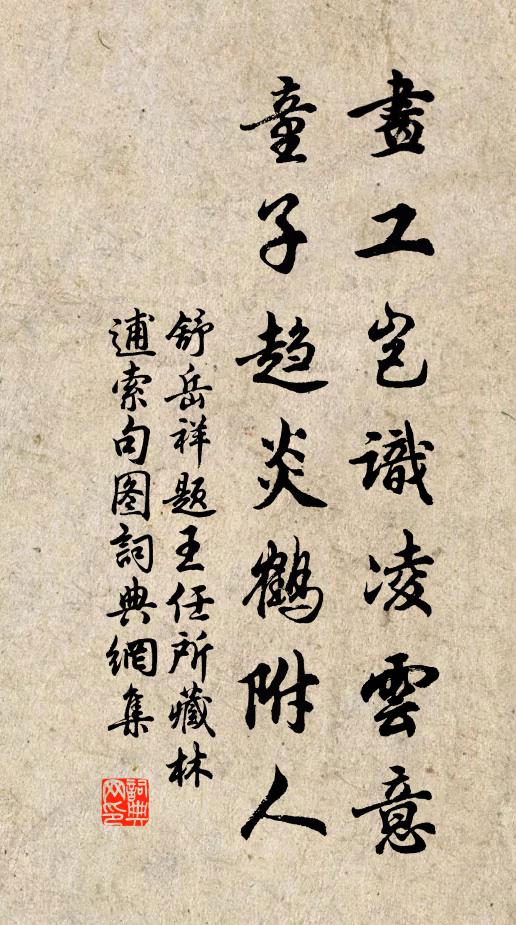 畫工豈識凌雲意
童子趋炎鶴附人
舒岳祥题王任所藏林
逋索句图詞典網集
詞典网印